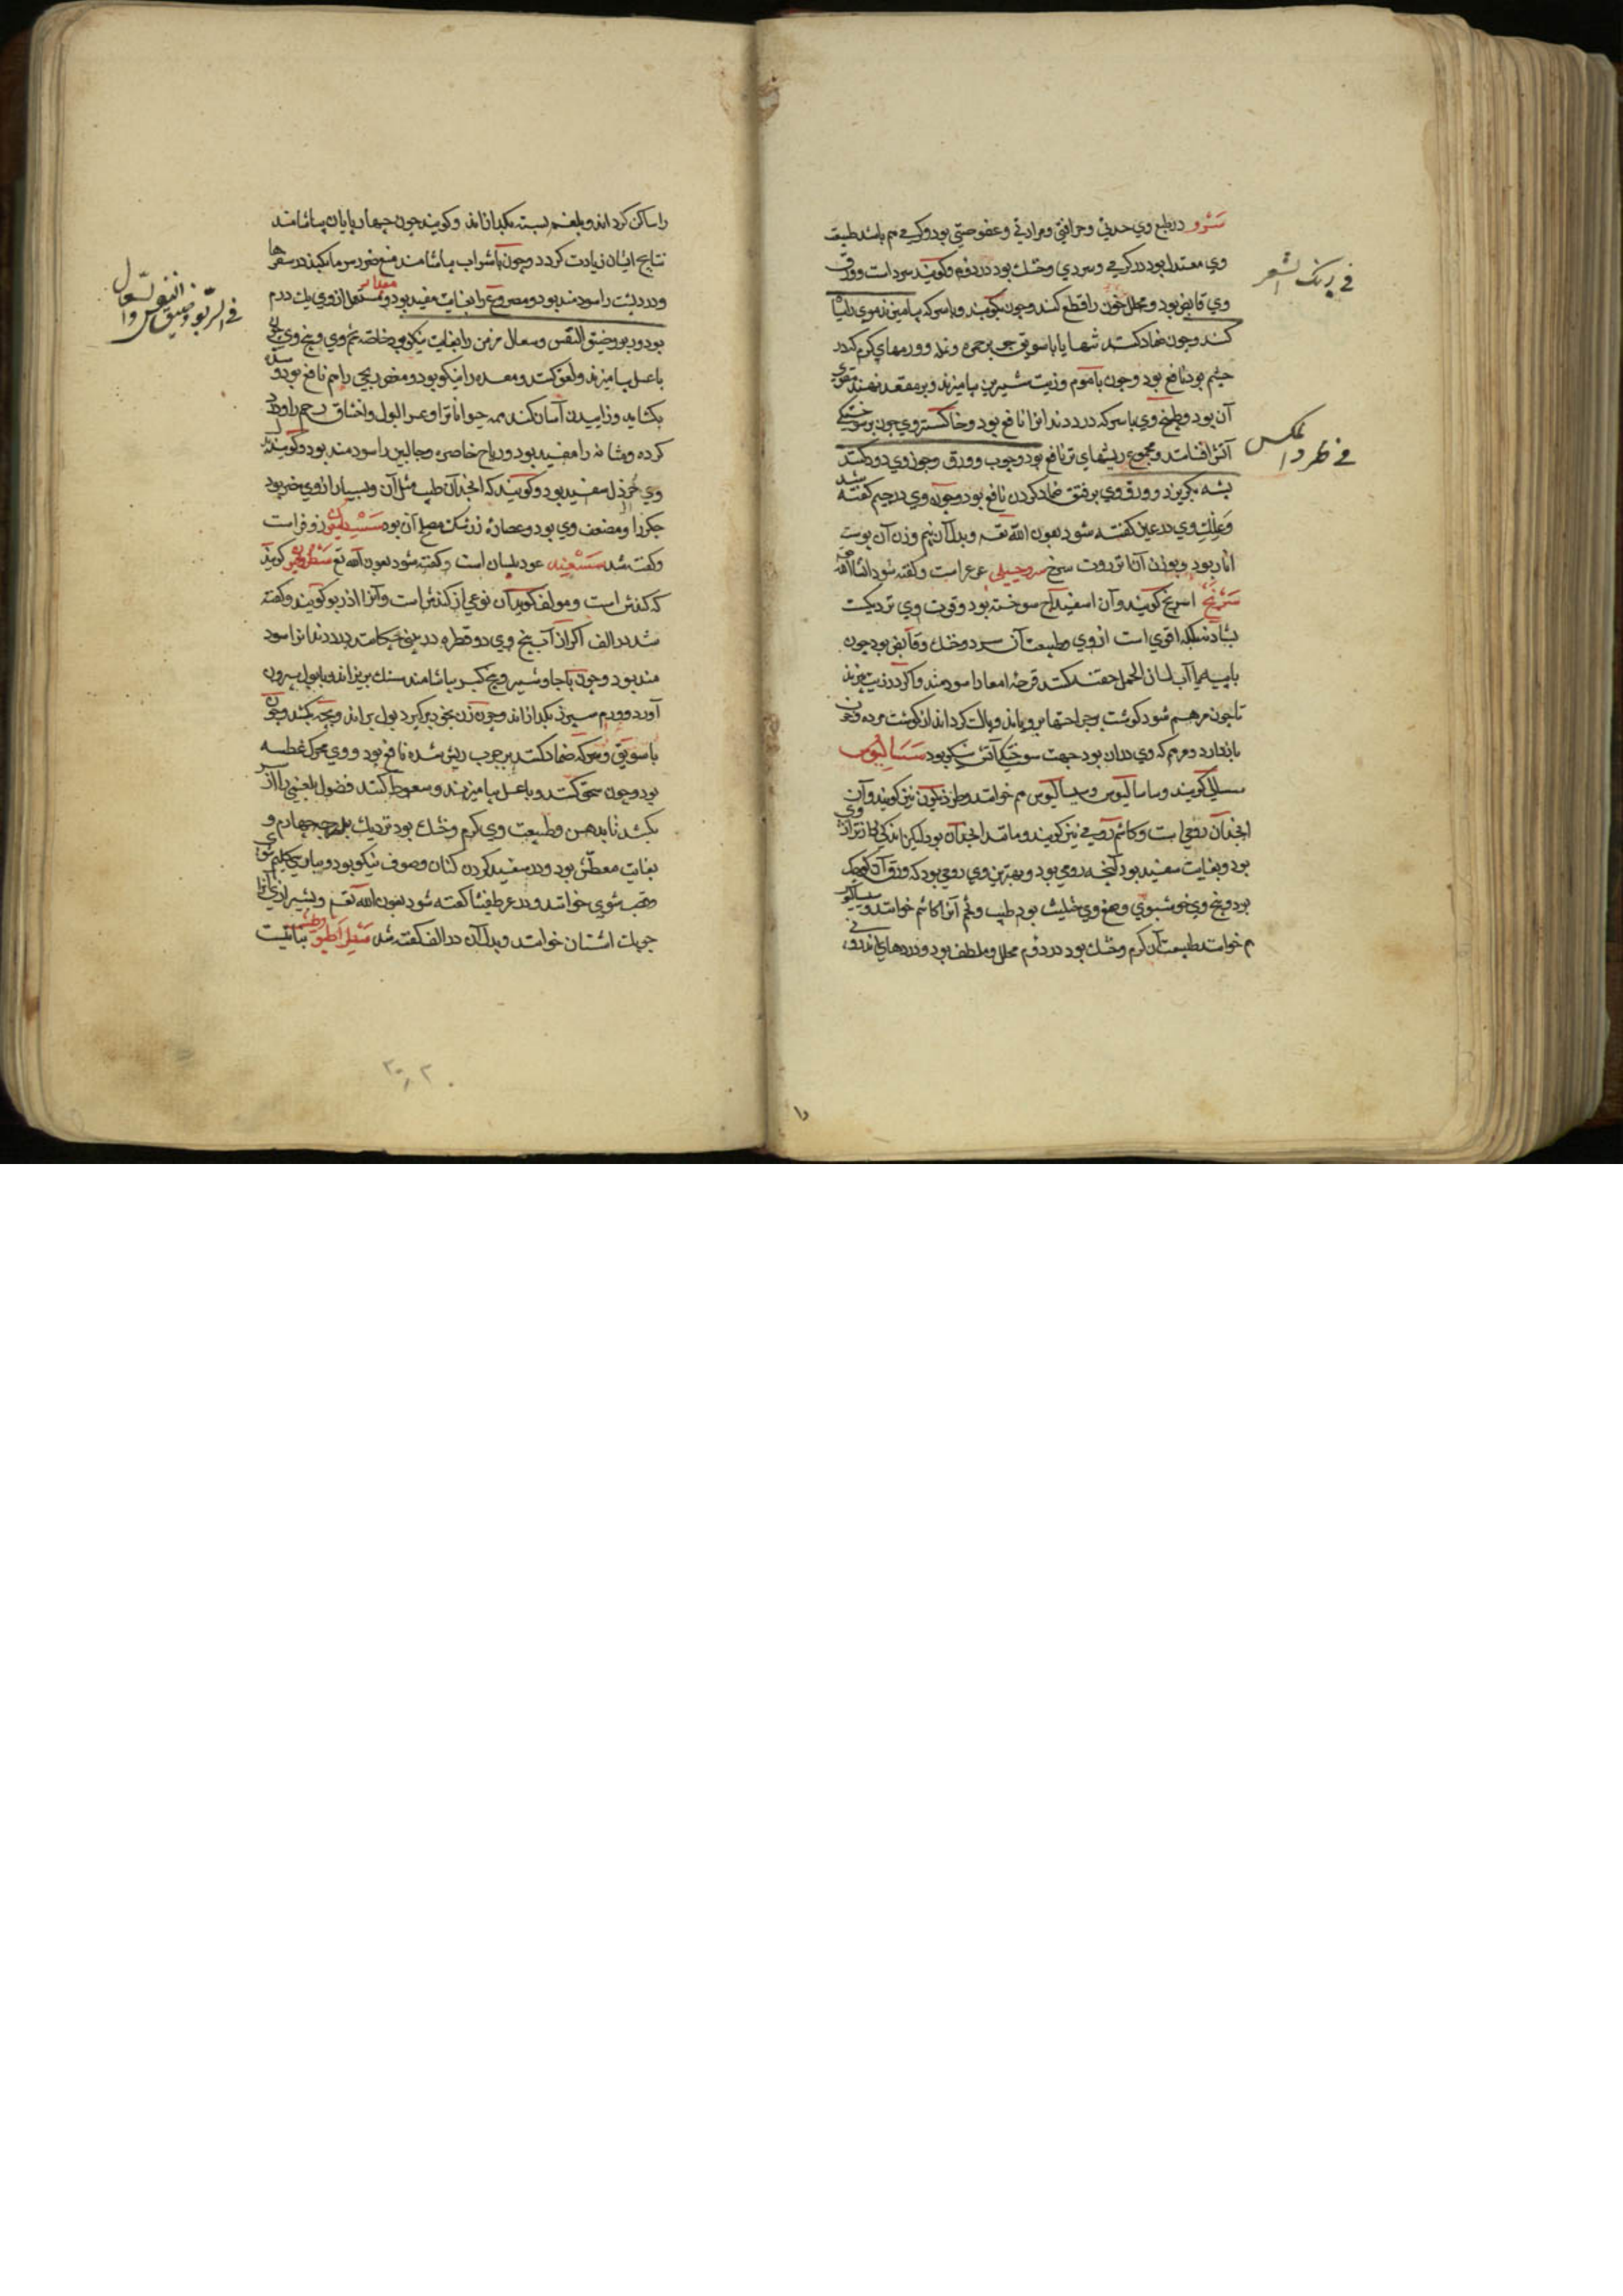 سرو در طبع وی حدتی و حرافتی و مرارتی و عفوصتی بود و گرمی هم باشد طبیعت
وی معتدل بود در گرمی و سردی و خشک بود در دوم و گویند سرد است و ورق
وی قابض بود و محلل خون را قطع کند و چون بکوبند و با سرکه بیامیزند موی را سیاه
کند و چون ضماد کنند تنها یا با سویق جو بر حمره و نمله و ورمهای گرم که در
چشم بود نافع بود و چون با موم و زیت شیرین بیامیزند و بر معده نهند مقوی
آن بود و طبیخ وی با سرکه درد دندانرا نافع بود و خاکستر وی چون بر سوختگی
آتش افشانند و مجموع ریشهای تر نافع بود و چوب و ورق و جوز وی دود کنند
پشه بگریزد و ورق وی بر فتق ضماد کردن نافع بود و جوز وی در جیم گفته شد
و علک وی در عین گفته شود بعون الله تعه و بدل آن نیم وزن آن پوست
انار بود و بوزن آن انزروت سرخ سرو جبلی عرعر است و گفته شود انشاالله
سرنج اسرنج گویند و آن اسفیداج سوخته بود و قوت وی نزدیکست
بشادنه بلکه اقوی است از وی و طبیعت آن سرد و خشک و قابض بود چون
با پیه یا آب لسان الحمل حقنه کنند قرحه امعا را سودمند و اگر در زیت بپزند
تا چون مرهم شود گوشت بر جراحتها برویاند و پاک گرداند از گوشت مرده و خون
بازدارد و مرهم که وی در آن بود جهت سوختگی آتش نیکو بود سسالیوس
سسالی گویند و ساسالیوس و سیسالیوس هم خوانند و طردیلون نیز گویند و آن
انجدان رومی است و کاشم رومی نیز گویند و مانند انجدان بود لیکن اندکی درازتر از وی
بود و بغایت سفید بود آنچه رومی بود و بهترین وی رومی بود که ورق آن کوچک
بود و بیخ وی خوشبوی و صمغ وی حلتیت بود طیب و تخم آنرا کاشم خوانند و سیسالیوس
هم خوانند طبیعت آن گرم و خشک بود در دوم محلل و ملطف بود و دردهای اندرونی
را
فی رنگ الشعر
فی طرد المکس
را ساکن گرداند و بلغم بسته بگدازاند و گویند چون چهارپایان بیاشامند
نتایج ایشان زیادت گردد و چون با شراب بیاشامند منع ضرر سرما بکند در سفرها
و درد پشت را سودمند بود و مصروع را بغایت مفید بود و مستعمل از وی یک درم
مقدار
بود و ربو و ضیق النفس و سعال مزمن را بغایت نیکو بود خاصه تخم وی و بیخ وی چون
با عسل بیامیزند و لعق کنند و معده را نیکو بود و مغص ریحی را هم نافع بود و سده
بگشاید و زاییدن آسان کند همه حیوانات را و عسر البول و اختناق رحم را و درد
گرده و مثانه را مفید بود و ریاح خاصره و حالبین را سودمند بود و گویند تخم
وی خرذل سفید بود و گویند که انجدان طیب مثل آن و بسیار از وی مضر بود
جگر را و مضعف وی بود و عصاره زرشک مصلح آن بود سسیلیون زوفراست
و گفته شد سسعینه عود بلسان است و گفته شود بعون الله تع سطرونیون گویند
که کندش است و مولف گوید آن نوعی از کندش است و آنرا اذربو گویند و گفته
شد در الف اگر از آب بیخ وی دو قطره در بینی چکانند درد دندانرا سود
مند بود و چون با جاوشیر و بیخ کبر بیاشامند سنک بریزاند و با بول بیرون
آورد و ورم سپرز بگدازاند و چون زن بخود برگیرد بول براند و بچه بکشد و چون
با سویق و سرکه ضماد کنند بر جرب ریش شده نافع بود و وی محرک عطسه
بود و چون سحق کنند و با عسل بیامیزند و سعوط کنند فضول بلغمی را از سر
بکشد تا بدهن و طبیعت وی گرم و خشک بود نزدیک بدرجه چهارم و
بغایت معطش بود و در سفید کردن کتان و صوف نیکو بود و بپارسی گلیم شوی
و قصب شوی خوانند و در عرطنیثا گفته شود بعون الله تعه و بشیرازی آنرا
چوبک اشنان خوانند و بدل آن در الف گفته شد سطراطیوطس نباتیست
فی الربو و ضیق النفس والسعال